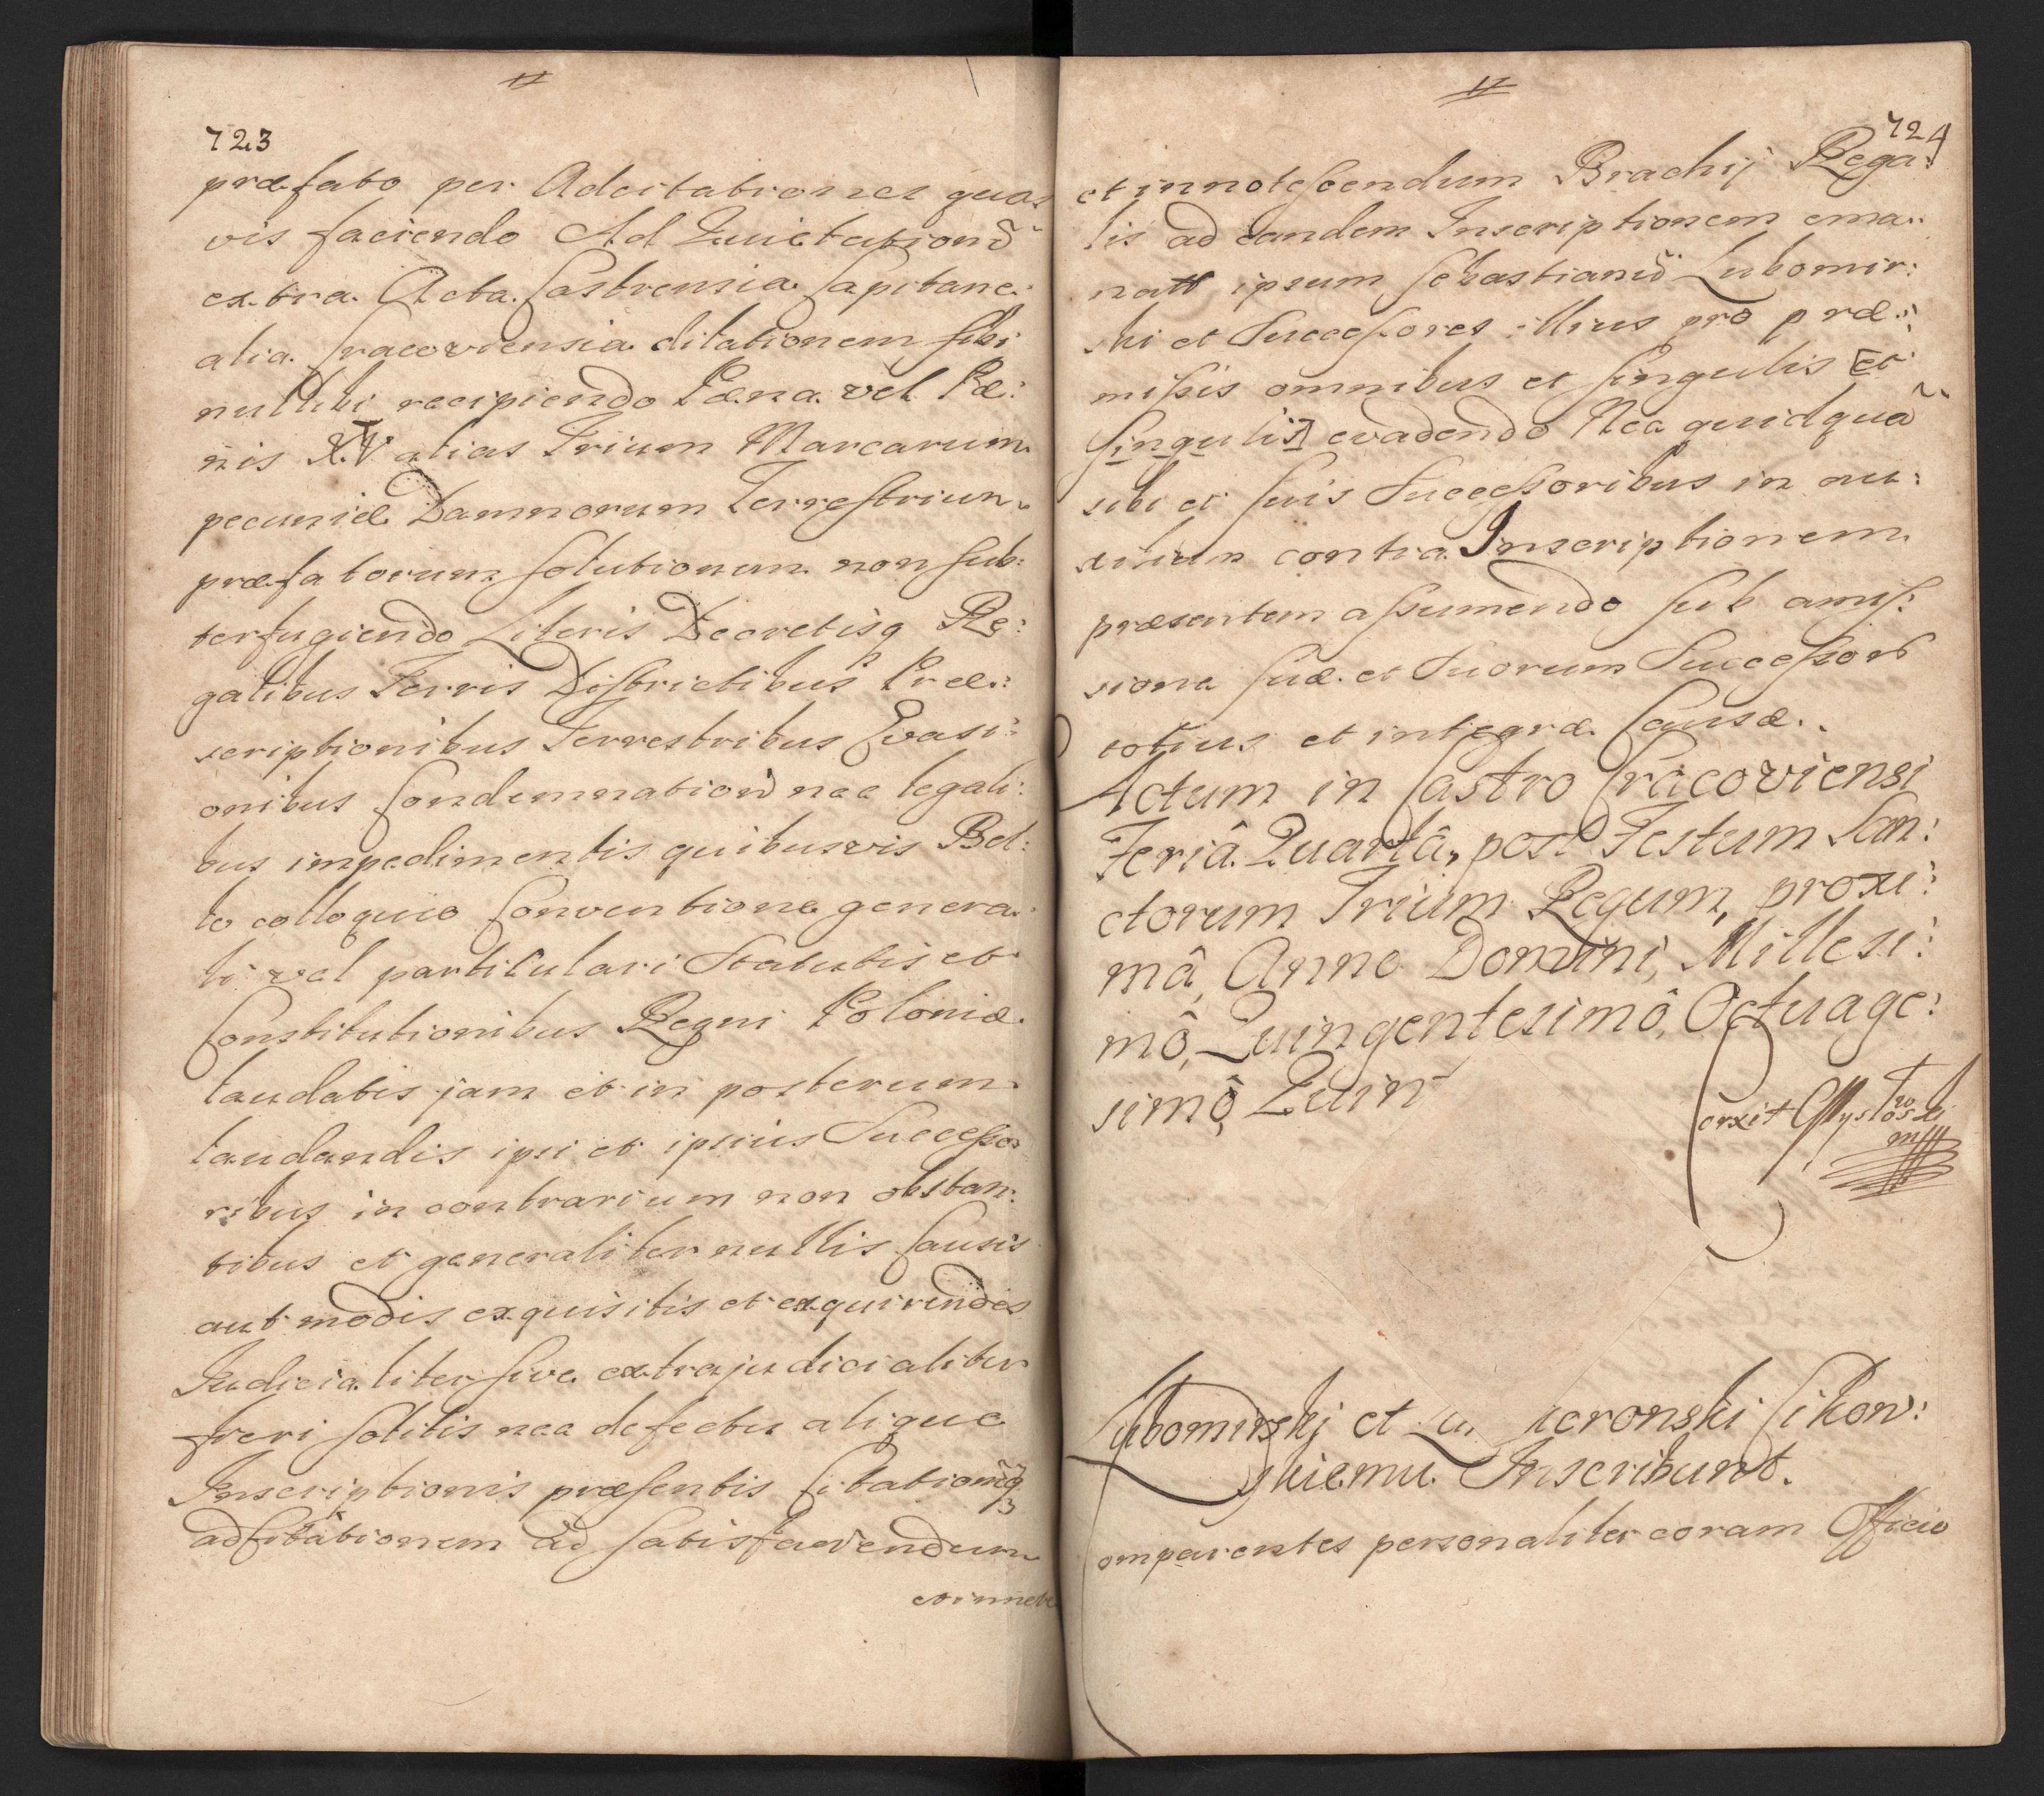 723
præfato per Adcitationes quas
vis faciendo Ad Quietationẽ
extra Acta Castrensia Capitane:
alia Cracoviensia ditationem sibi
nullibi recipiendo Pæna vel Pæ:
nis XV alias Trium Marcarum
pecuniæ Damnorum Terrestrium
præfatorum solutionem non sub:
terfugiendo Literis Decretisq Re:
galibus Terris Districtibus Præ:
scriptionibus Terrestribus Evasi:
onibus Condemnation nec legali:
bus impedimentis quibusvis Bel:
lo colloquio Conventione genera:
li vel particulari Statutis et
Constitutionibus Regni Poloniæ
laudatis jam et in posterum
laudandis ipsi et ipsius Successo:
ribus in contrarium non obstan:
tibus et generaliter nullis Causis
aut modis exquisitis et exquirendis
Judicialiter sive extrajudicialiter
freri solitis nec defectu aliquo
Inscriptionis præsentis Citationũq
adCitationem ad satisfaciendum
724
et innotescendum Brachij Rega:
lis ad eandem Inscriptionem ema:
natt ipsum Sebastianũ Lubomir:
ski et Successores illius pro præ:
missis omnibus et singulis et
singulis evadendo Nec quidquã
sibi et suis Successoribus in au:
xilium contra Inscriptionem
præsentem assumendo sub amis:
sione suæ et Suorum Successor
totius et integræ Causæ.
Actum in Castro Cracoviensi
Feriâ Quartâ, post Festum San:
ctorum Trium Regum, proxi:
mâ, Anno Domini, Millesi:
mô, Quingentesimô, Octuage:
simô, Quin
Lubomirskj et ieronski Cikow:
skiemu Inscribunt.
omparentes personaliter coram Officio